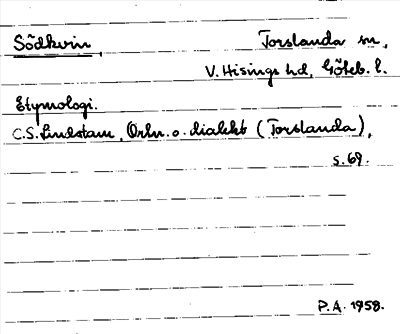 Södkvin, Torslanda sn,
V. Hisings hd, Göteb. l.
Etymologi.
C.S. Lindstam, Ortn. o. dialekt (Torslanda),
s. 69.
P.A. 1958.